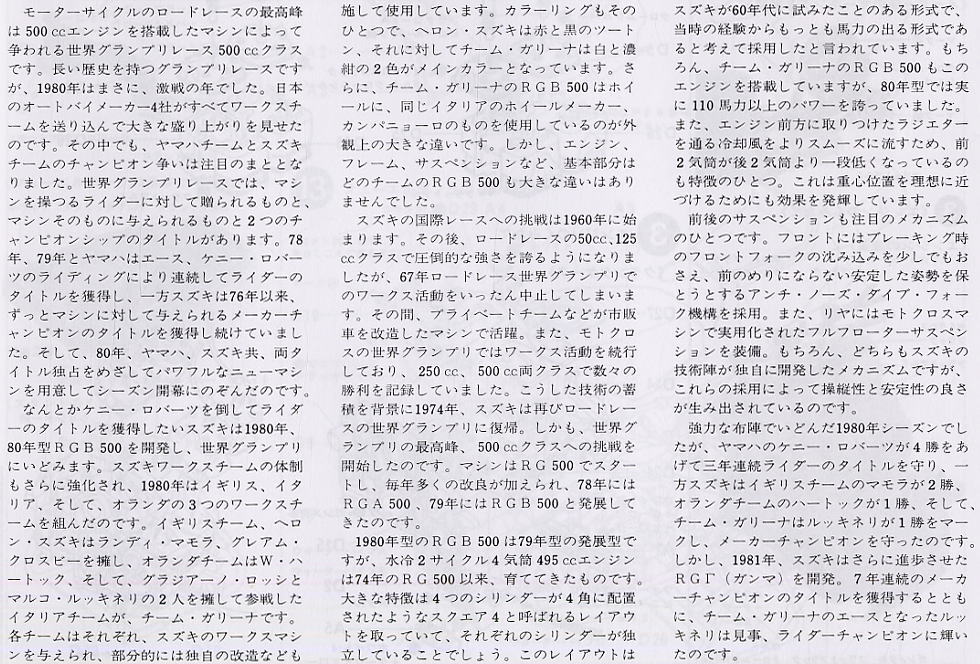 モーターサイクルのロードレースの最高峰
は500ccエンジンを搭載したマシンによって
争われる世界グランプリレース500ccクラス
です。長い歴史を持つグランプリレースです
が、1980年はまさに、激戦の年でした。日本
のオートバイメーカー4社がすべてワークスチ
ームを送り込んで大きな盛り上がりを見せた
のです。その中でも、ヤマハチームとスズキ
チームのチャンピオン争いは注目のまととな
りました。世界グランプリレースでは、マシ
ンを操つるライダーに対して贈られるものと、
マシンそのものに与えられるものと2つのチ
ャンピオンシップのタイトルがあります。78
年、79年とヤマハはエース、ケニー・ロバー
ツのライディングにより連続してライダーの
タイトルを獲得し、一方スズキは76年以来、
ずっとマシンに対して与えられるメーカーチ
ャンピオンのタイトルを獲得し続けていまし
た。そして、80年、ヤマハ、スズキ共、両タ
イトル独占をめざしてパワフルなニューマシ
ンを用意してシーズン開幕にのぞんだのです。
なんとかケニー・ロバーツを倒してライダ
ーのタイトルを獲得したいスズキは1980年、
80年型RGB500を開発し、世界グランプリ
にいどみます。スズキワークスチームの体制
もさらに強化され、1980年はイギリス、イタ
リア、そして、オランダの3つのワークスチ
ームを組んだのです。イギリスチーム、ヘロ
ン・スズキはランディ・マモラ、グレアム・
クロスビーを擁し、オランダチームはW・ハ
ートック、そして、グラジアーノ・ロッシと
マルコ・ルッキネリの2人を擁して参戦した
イタリアチームが、チーム・ガリーナです。
各チームはそれぞれ、スズキのワークスマシ
ンを与えられ、部分的には独自の改造なども
施して使用しています。カラーリングもその
ひとつで、ヘロン・スズキは赤と黒のツート
ン、それに対してチーム・ガリーナは白と濃
紺の2色がメインカラーとなっています。さ
らに、チーム・ガリーナのRGB500はホイ
ールに、同じイタリアのホイールメーカー、
カンパニョーロのものを使用しているのが外
観上の大きな違いです。しかし、エンジン、
フレーム、サスペンションなど、基本部分は
どのチームのRGB500も大きな違いはあり
ませんでした。
スズキの国際レースへの挑戦は1960年に始
まります。その後、ロードレースの50cc、125
ccクラスで圧倒的な強さを誇るようになりま
したが、67年ロードレース世界グランプリで
のワークス活動をいったん中止してしまいま
す。その間、プライベートチームなどが市販
車を改造したマシンで活躍。また、モトクロ
スの世界グランプリではワークス活動を続行
しており、250cc、500cc両クラスで数々の
勝利を記録していました。こうした技術の蓄
積を背景に1974年、スズキは再びロードレー
スの世界グランプリに復帰。しかも、世界グ
ランプリの最高峰、500ccクラスへの挑戦を
開始したのです。マシンはRG500でスター
トし、毎年多くの改良が加えられ、78年には
RGA500、79年にはRGB500と発展して
きたのです。
1980年型のRGB500は79年型の発展型で
すが、水冷2サイクル4気筒495ccエンジン
は74年のRG500以来、育ててきたものです。
大きな特徴は4つのシリンダーが4角に配置
されたようなスクエア4と呼ばれるレイアウ
トを取っていて、それぞれのシリンダーが独
立していることでしょう。このレイアウトは
スズキが60年代に試みたことのある形式で、
当時の経験からもっとも馬力の出る形式であ
ると考えて採用したと言われています。もち
ろん、チーム・ガリーナのRGB500もこの
エンジンを搭載していますが、80年型では実
に110馬力以上のパワーを誇っていました。
また、エンジン前方に取りつけたラジエター
を通る冷却風をよりスムーズに流すため、前
2気筒が後2気筒より一段低くなっているの
も特徴のひとつ。これは重心位置を理想に近
づけるためにも効果を発揮しています。
前後のサスペンションも注目のメカニズム
のひとつです。フロントにはブレーキング時
のフロントフォークの沈み込みを少しでもお
さえ、前のめりにならない安定した姿勢を保
とうとするアンチ・ノーズ・ダイブ・フォー
ク機構を採用。また、リヤにはモトクロスマ
シンで実用化されたフルフローターサスペン
ションを装備。もちろん、どちらもスズキの
技術陣が独自に開発したメカニズムですが、
これらの採用によって操縦性と安定性の良さ
が生み出されているのです。
強力な布陣でいどんだ1980年シーズンでし
たが、ヤマハのケニー・ロバーツが4勝をあ
げて三年連続ライダーのタイトルを守り、一
方スズキはイギリスチームのマモラが2勝、
オランダチームのハートックが1勝、そして
チーム・ガリーナはルッキネリが1勝をマー
クし、メーカーチャンピオンを守ったのです。
しかし、1981年、スズキはさらに進歩させた
RGΓ(ガンマ)を開発。7年連続のメーカ
ーチャンピオンのタイトルの獲得するととも
に、チーム・ガリーナのエースとなったルッ
キネリは見事、ライダーチャンピオンに輝い
たのです。